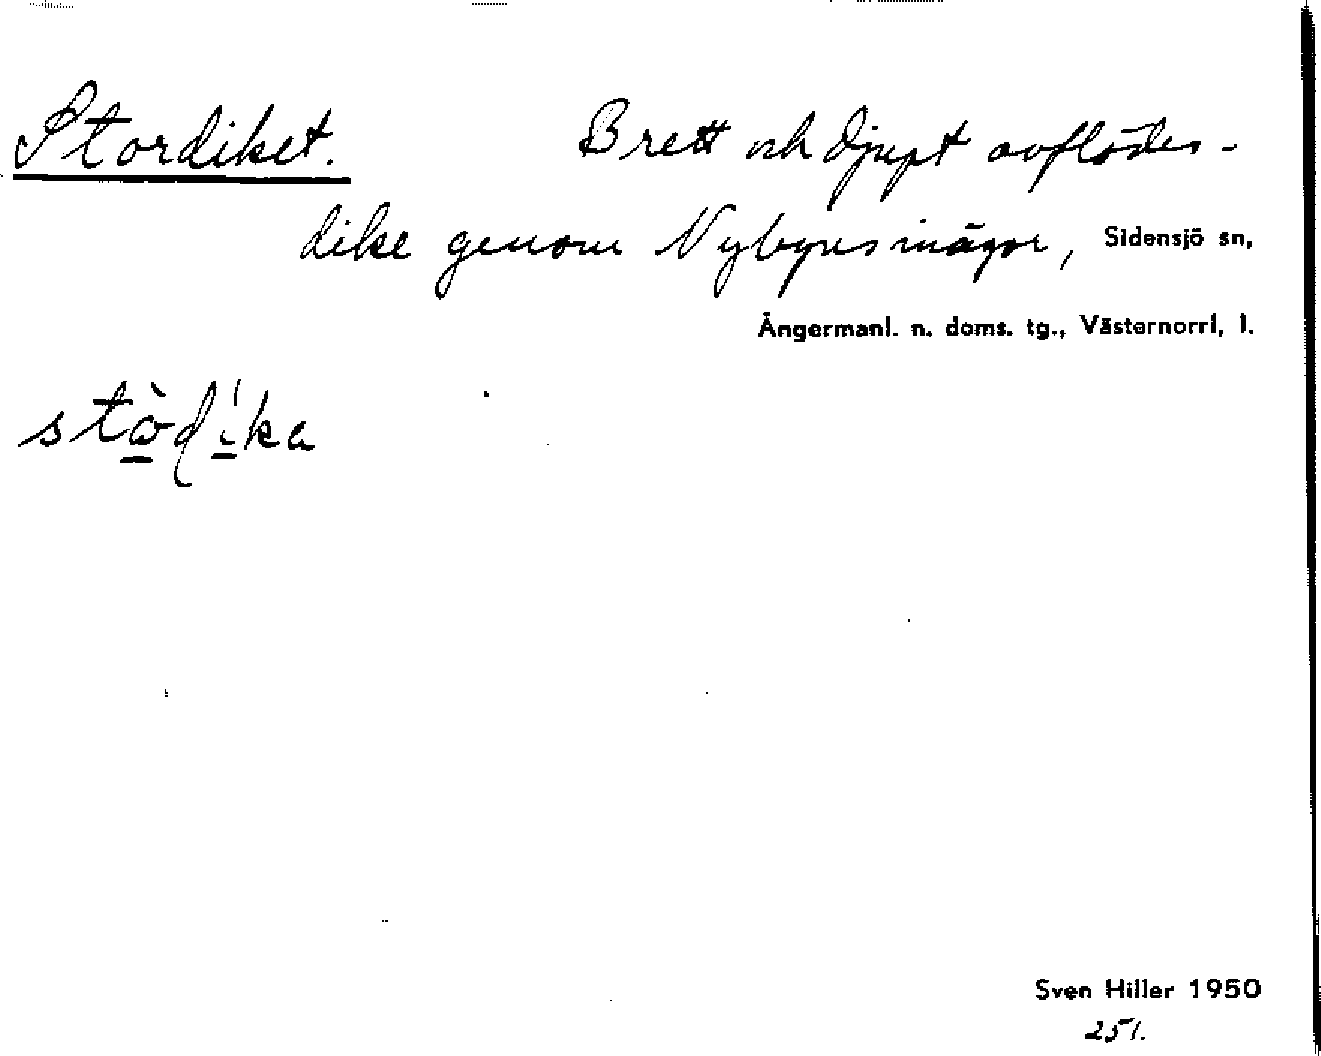 Stordiket. Brett och djupt avflödes-
dike genom Nybyns inägor, Sidensjö sn,
Ångermanl. n. doms. tg., Västernorrl, l.
stòdíka
Sven Hiller 1950
251.